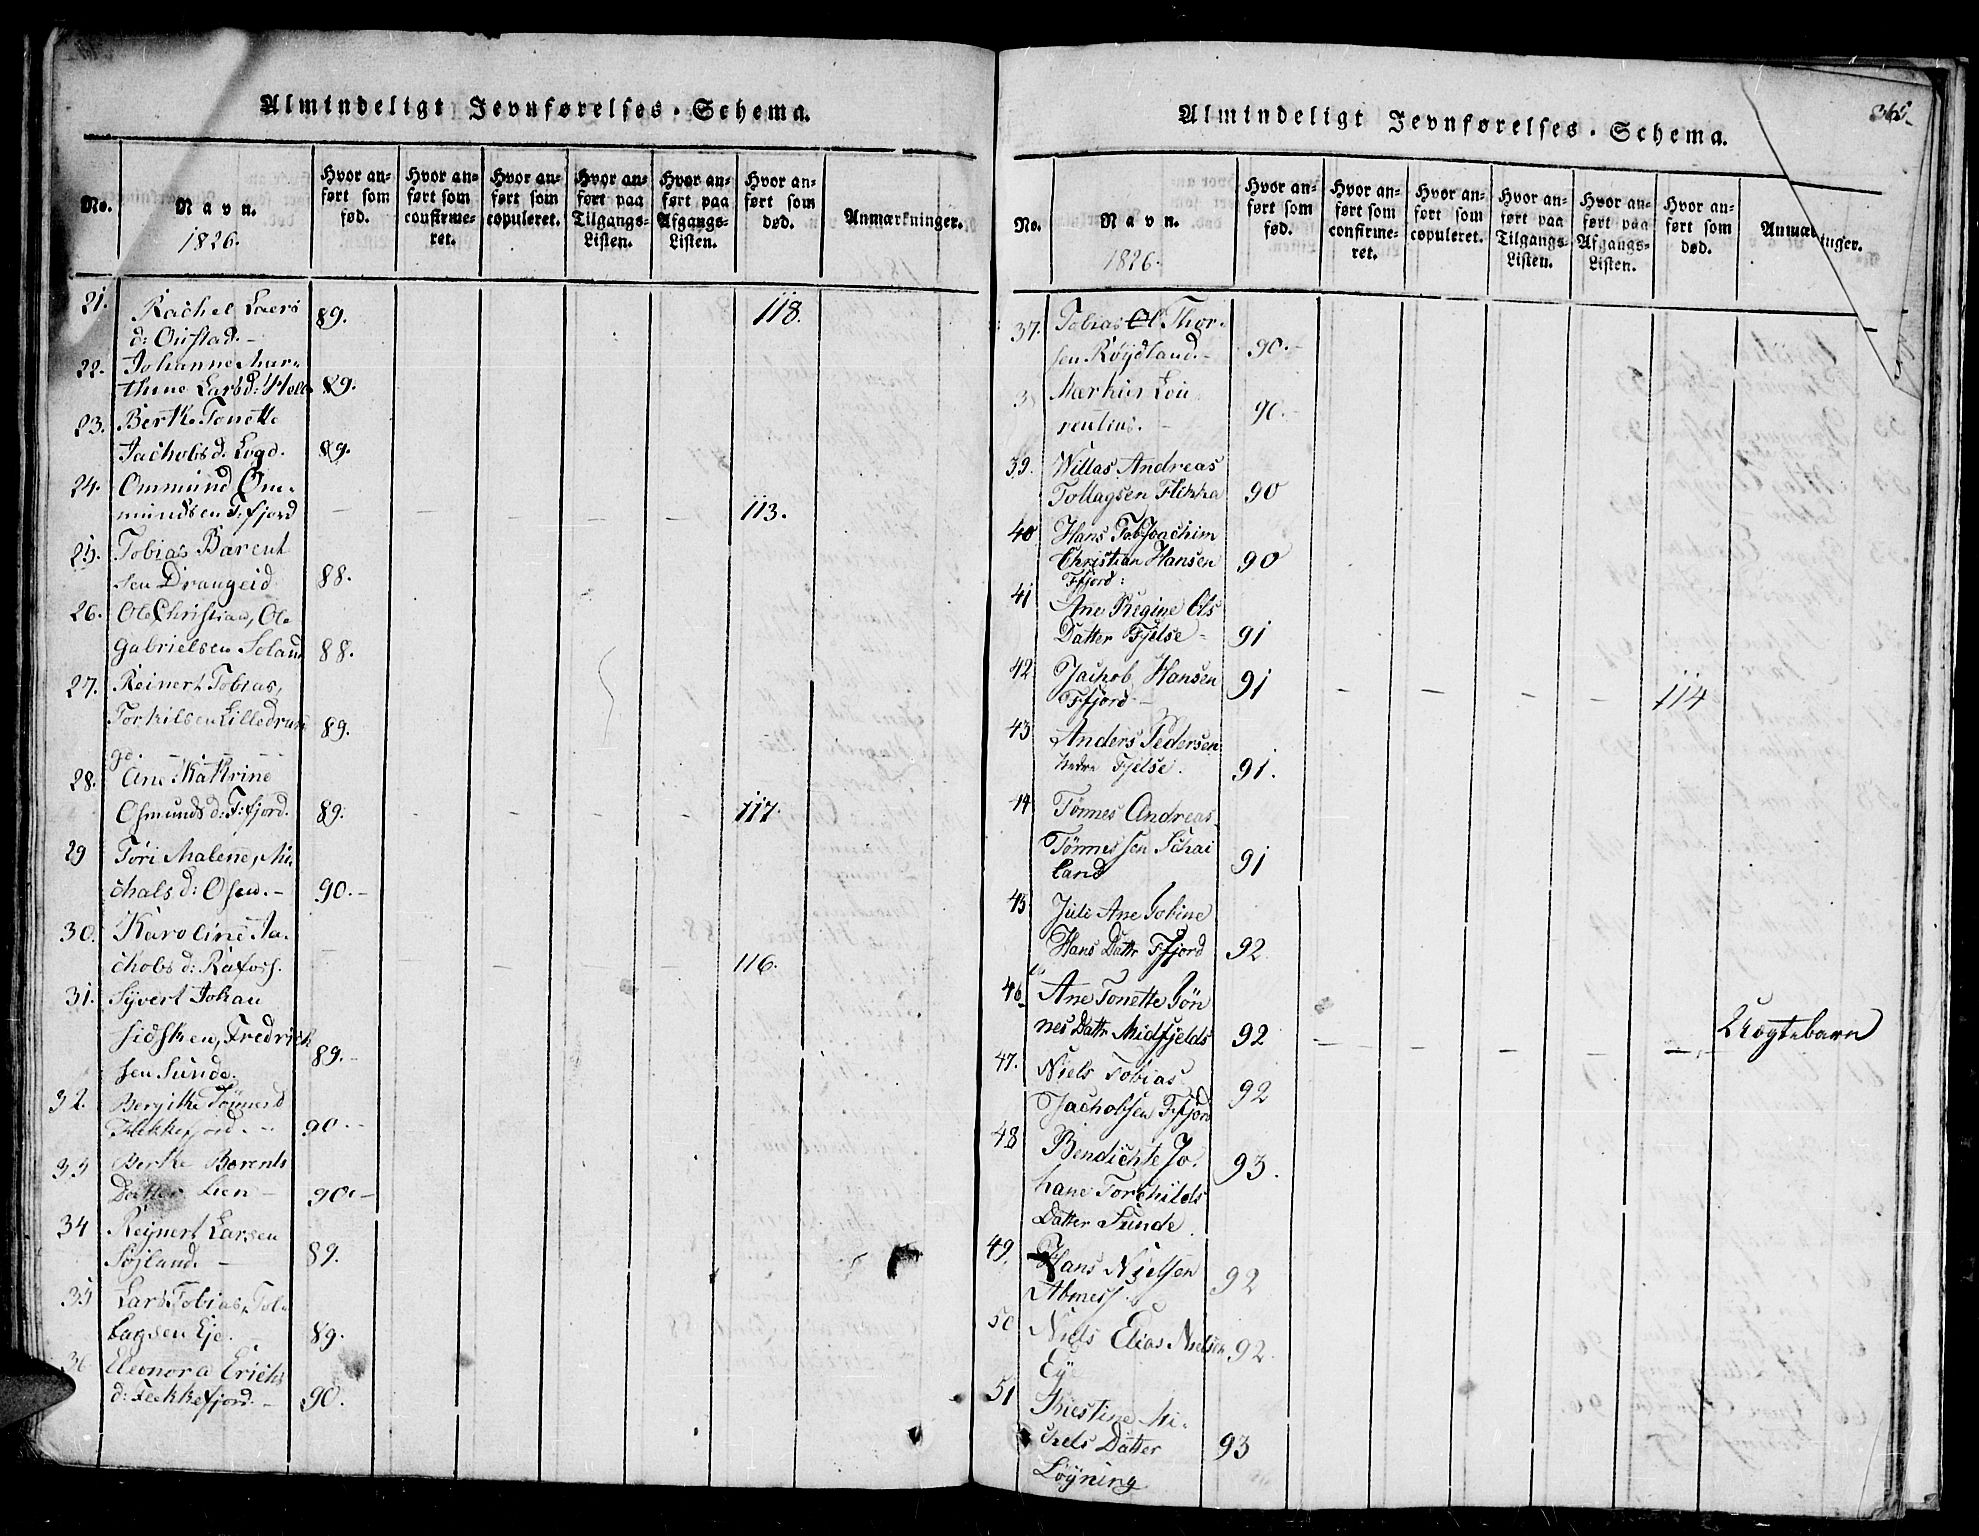 Almindeligt Jevnførelses-Schema.
No.
Navn.
1826.
Hvor an-
ført som
fød.
Hvor an-
ført som
confirme-
ret.
Hvor an-
ført som
copuleret.
Hvor an-
ført paa
Tilgangs-
Listen.
Hvor an-
ført paa
Afgangs-
Listen.
Hvor an-
ført som
død.
Anmærkninger.
21. Rachel Laers
d: 89. 118.
22. Johanne
thine Larsd: 89.
23. Berthe Tonette
Jachobsd. Logd. 89.
24. Ommund Om-
mundsen F:fjord — — — — — 113.
25. Tobias Barent
sen Drangeid 88.
26. Ole Christian, Ole
Gabrielsen Seland 88.
27. Reinert Tobias,
Torkilsen Lilledran 89.
ge. — — —
28. Ane Kathrine
Osmunds d: F:fjord. 89. — — — — 117.
29 Tori Malene, Mi
chals d: Osen.- 90.-
30. Karoline Ja-
chobs d: Rafoss. — — — — — 116.
31. Syvert Johan
sidsken, Fredrich
sen Sunde. 89.-
32. Bergithe Tönnesd
Flekkefjord. - - 90.--
33 Berthe Berents
Datter Lien - 90.-
34 Reynert Larsen
Søjland. - 89.
35 Lars Tobias, Tol-
lagsen Eje. - 89.
36 Eleonora Erichs
d: Fleckkefjord. - 90.
Almindeligt Jevnførelses-Schema.
No.
Navn.
1826.
Hvor an-
ført som
fød.
Hvor an-
ført som
confirme-
ret.
Hvor an-
ført som
copuleret.
Hvor an-
ført paa
Tilgangs-
Listen.
Hvor an-
ført paa
Afgangs-
Listen.
Hvor an-
ført som
død.
Anmær inger.
37. Tobias Ol Thor-
sen Röydland.- 90.-
3 Markus Lau
rentius. - 90.-
39. Willas Andreas
Tollagsen Flikka 90
40 Hans Tob Joachim
Christian Hansen 90
Ffjord:
41 Ane Regine Ols
Datter Fjelse - 91
42 Jachob Hansen 91 — — — — 114
Ffjord -
43 Anders Pedersen
Fjelse. 91.
44 Tönnes Andreas
Tönnessen Schai
land 91
45 Juli Ane Tobine
Hans Dattr Ffjord 92
46 Ane Tonette Tön
nes Dattr Midfjelds 92 — — — — — Uægtebarn
47. Niels Tobias
Jachobsen Ffjord 92
48 Bendichte Jo-
hane Torchilds 93.
Datter Sunde.
49. Hans Nielsen
Abness 92
50 Niels Elias Nielsen 92.
Eye
51 Kiestine Mi-
chels Datter 93
Löyning